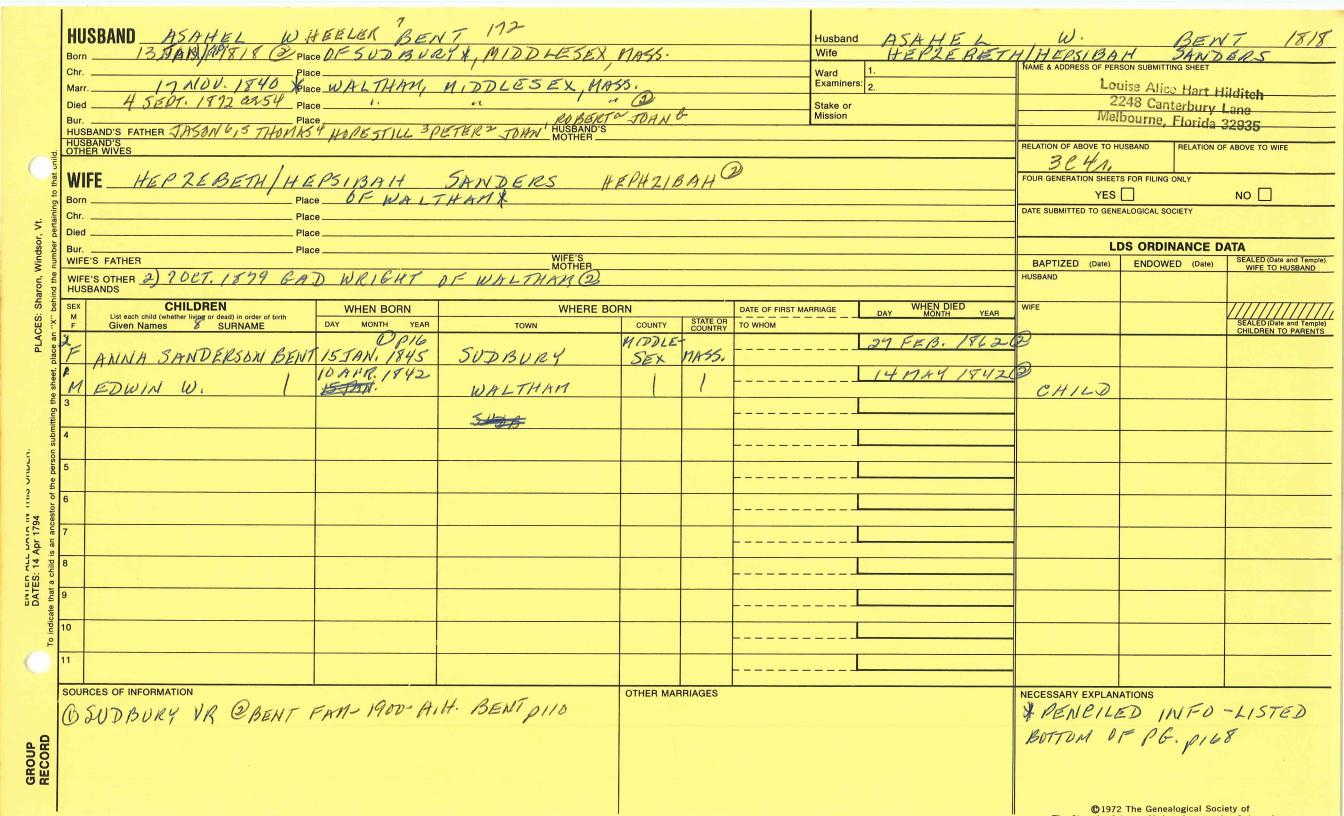 HUSBAND ASAHEL WHEELER 7 BENT 172
Born 13 1818 ② Place OF SUDBURY*, MIDDLESEX, MASS.
Chr. Place
Marr. 17 NOV. 1840 Place * WALTHAM, MIDDLESEX, MASS.
Died 4 SEPT. 1872 Place " " " ②
Bur. Place ROBERT JOHN
HUSBAND'S FATHER JASON THOMAS 4 HOPESTILL 3 PETER 2 JOHN 1 HUSBAND'S MOTHER
HUSBAND'S OTHER WIVES
WIFE HEPZEBETH/HEPSIBAH SANDERS HEPHZIBAH ②
Born Place OF WALTHAM*
Chr. Place
Died Place
Bur. Place
WIFE'S FATHER WIFE'S MOTHER
WIFE'S OTHER HUSBANDS 2) 7 OCT. 1879 GAD WRIGHT OF WALTHAM ②
Husband ASAHEL W. BENT 1818
Wife HEPZEBETH/HEPSIBAH SANDERS
Ward Examiners: 1.
2.
Stake or Mission
NAME & ADDRESS OF PERSON SUBMITTING SHEET
Louise Alice Hart Hilditch
2248 Canterbury Lane
Melbourne, Florida 32935
RELATION OF ABOVE TO HUSBAND RELATION OF ABOVE TO WIFE
3C4r.
FOUR GENERATION SHEETS FOR FILING ONLY
YES NO
DATE SUBMITTED TO GENEALOGICAL SOCIETY
LDS ORDINANCE DATA
BAPTIZED (Date) ENDOWED (Date) SEALED (Date and Temple) WIFE TO HUSBAND
HUSBAND
WIFE
SEALED (Date and Temple) CHILDREN TO PARENTS
SEX M F
CHILDREN
List each child (whether living or dead) in order of birth
Given Names 8 SURNAME
WHEN BORN
DAY MONTH YEAR
WHERE BORN
TOWN COUNTY STATE OR COUNTRY
DATE OF FIRST MARRIAGE
TO WHOM
WHEN DIED
DAY MONTH YEAR
2 F ANNA SANDERSON BENT ① p16 15 JAN. 1845 SUDBURY MIDDLE-SEX MASS. 27 FEB. 1862 ②
M EDWIN W. 10 APR. 1842 WALTHAM 14 MAY 1842 ② CHILD
3
4
5
6
7
8
9
10
11
SOURCES OF INFORMATION
① SUDBURY VR ② BENT FAM- 1900- A.H. BENT p110
OTHER MARRIAGES
NECESSARY EXPLANATIONS
* PENCILED INFO - LISTED
BOTTOM OF PG. p168
©1972 The Genealogical Society of
PLACES: Sharon, Windsor, Vt.
DATES: 14 Apr 1794
To indicate that a child is an ancestor of the person submitting the sheet, place an "X" behind the number pertaining to that child.
GROUP RECORD